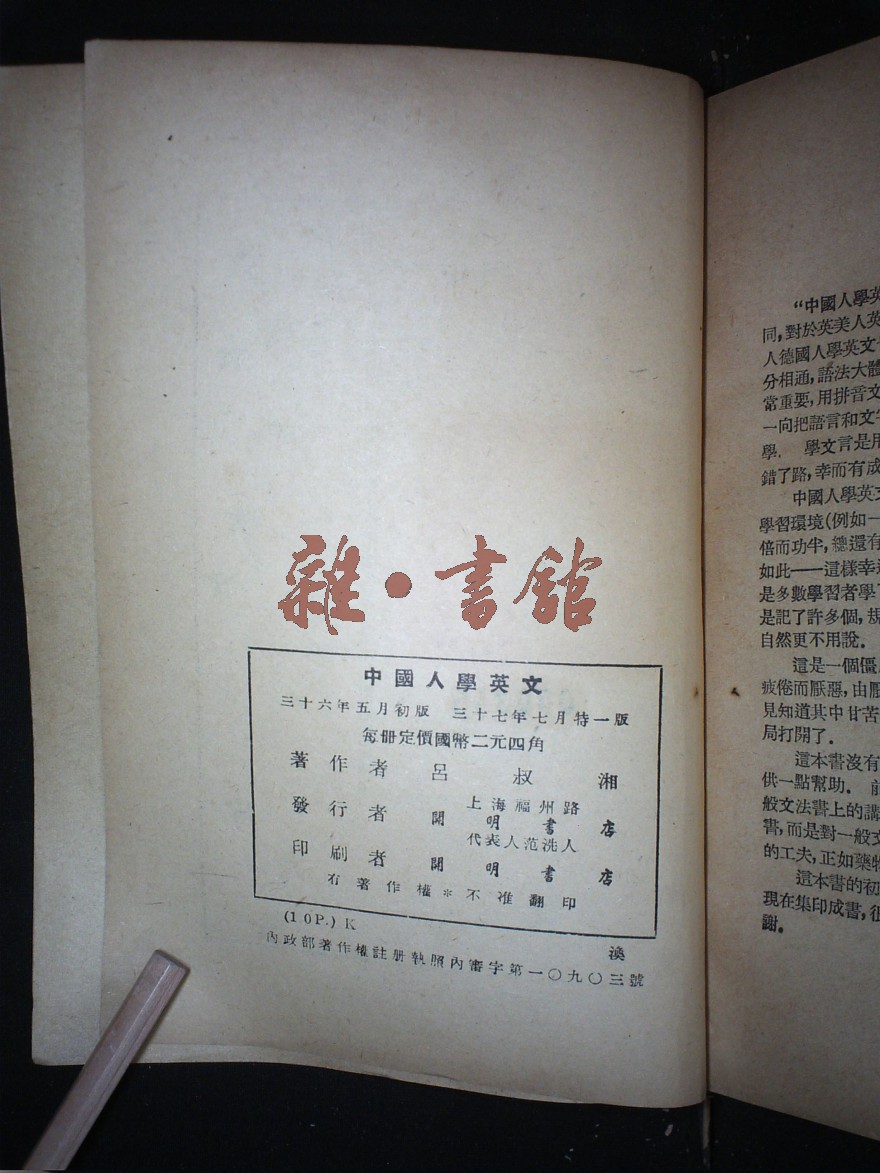 雜·書舘
中國人學英文
三十六年五月初版 三十七年七月特一版
每册定價國幣二元四角
著作者 呂叔湘
發行者 上海福州路
開明書店
代表人范洗人
印刷者 開明書店
有著作權*不准翻印
(10P.)K 渙
內政部著作權註册執照內審字第一〇九〇三號
“中國人學英
同,對於英美人英
人德國人學英文
分相通,語法大體
當重要,用拼音文
一向把語言和文字
學. 學文言是用
錯了路,幸而有成
中國人學英文
學習環境(例如一
倍而功半,總還有
如此——這樣幸運
是多數學習者學了
是記了許多個,規
自然更不用說.
這是一個僵
疲倦而厭惡,由厭
見知道其中甘苦
局打開了.
這本書沒有
供一點幫助. 前
般文法書上的講
書,而是對一般文
的工夫,正如藥物
這本書的初
現在集印成書,從
謝.